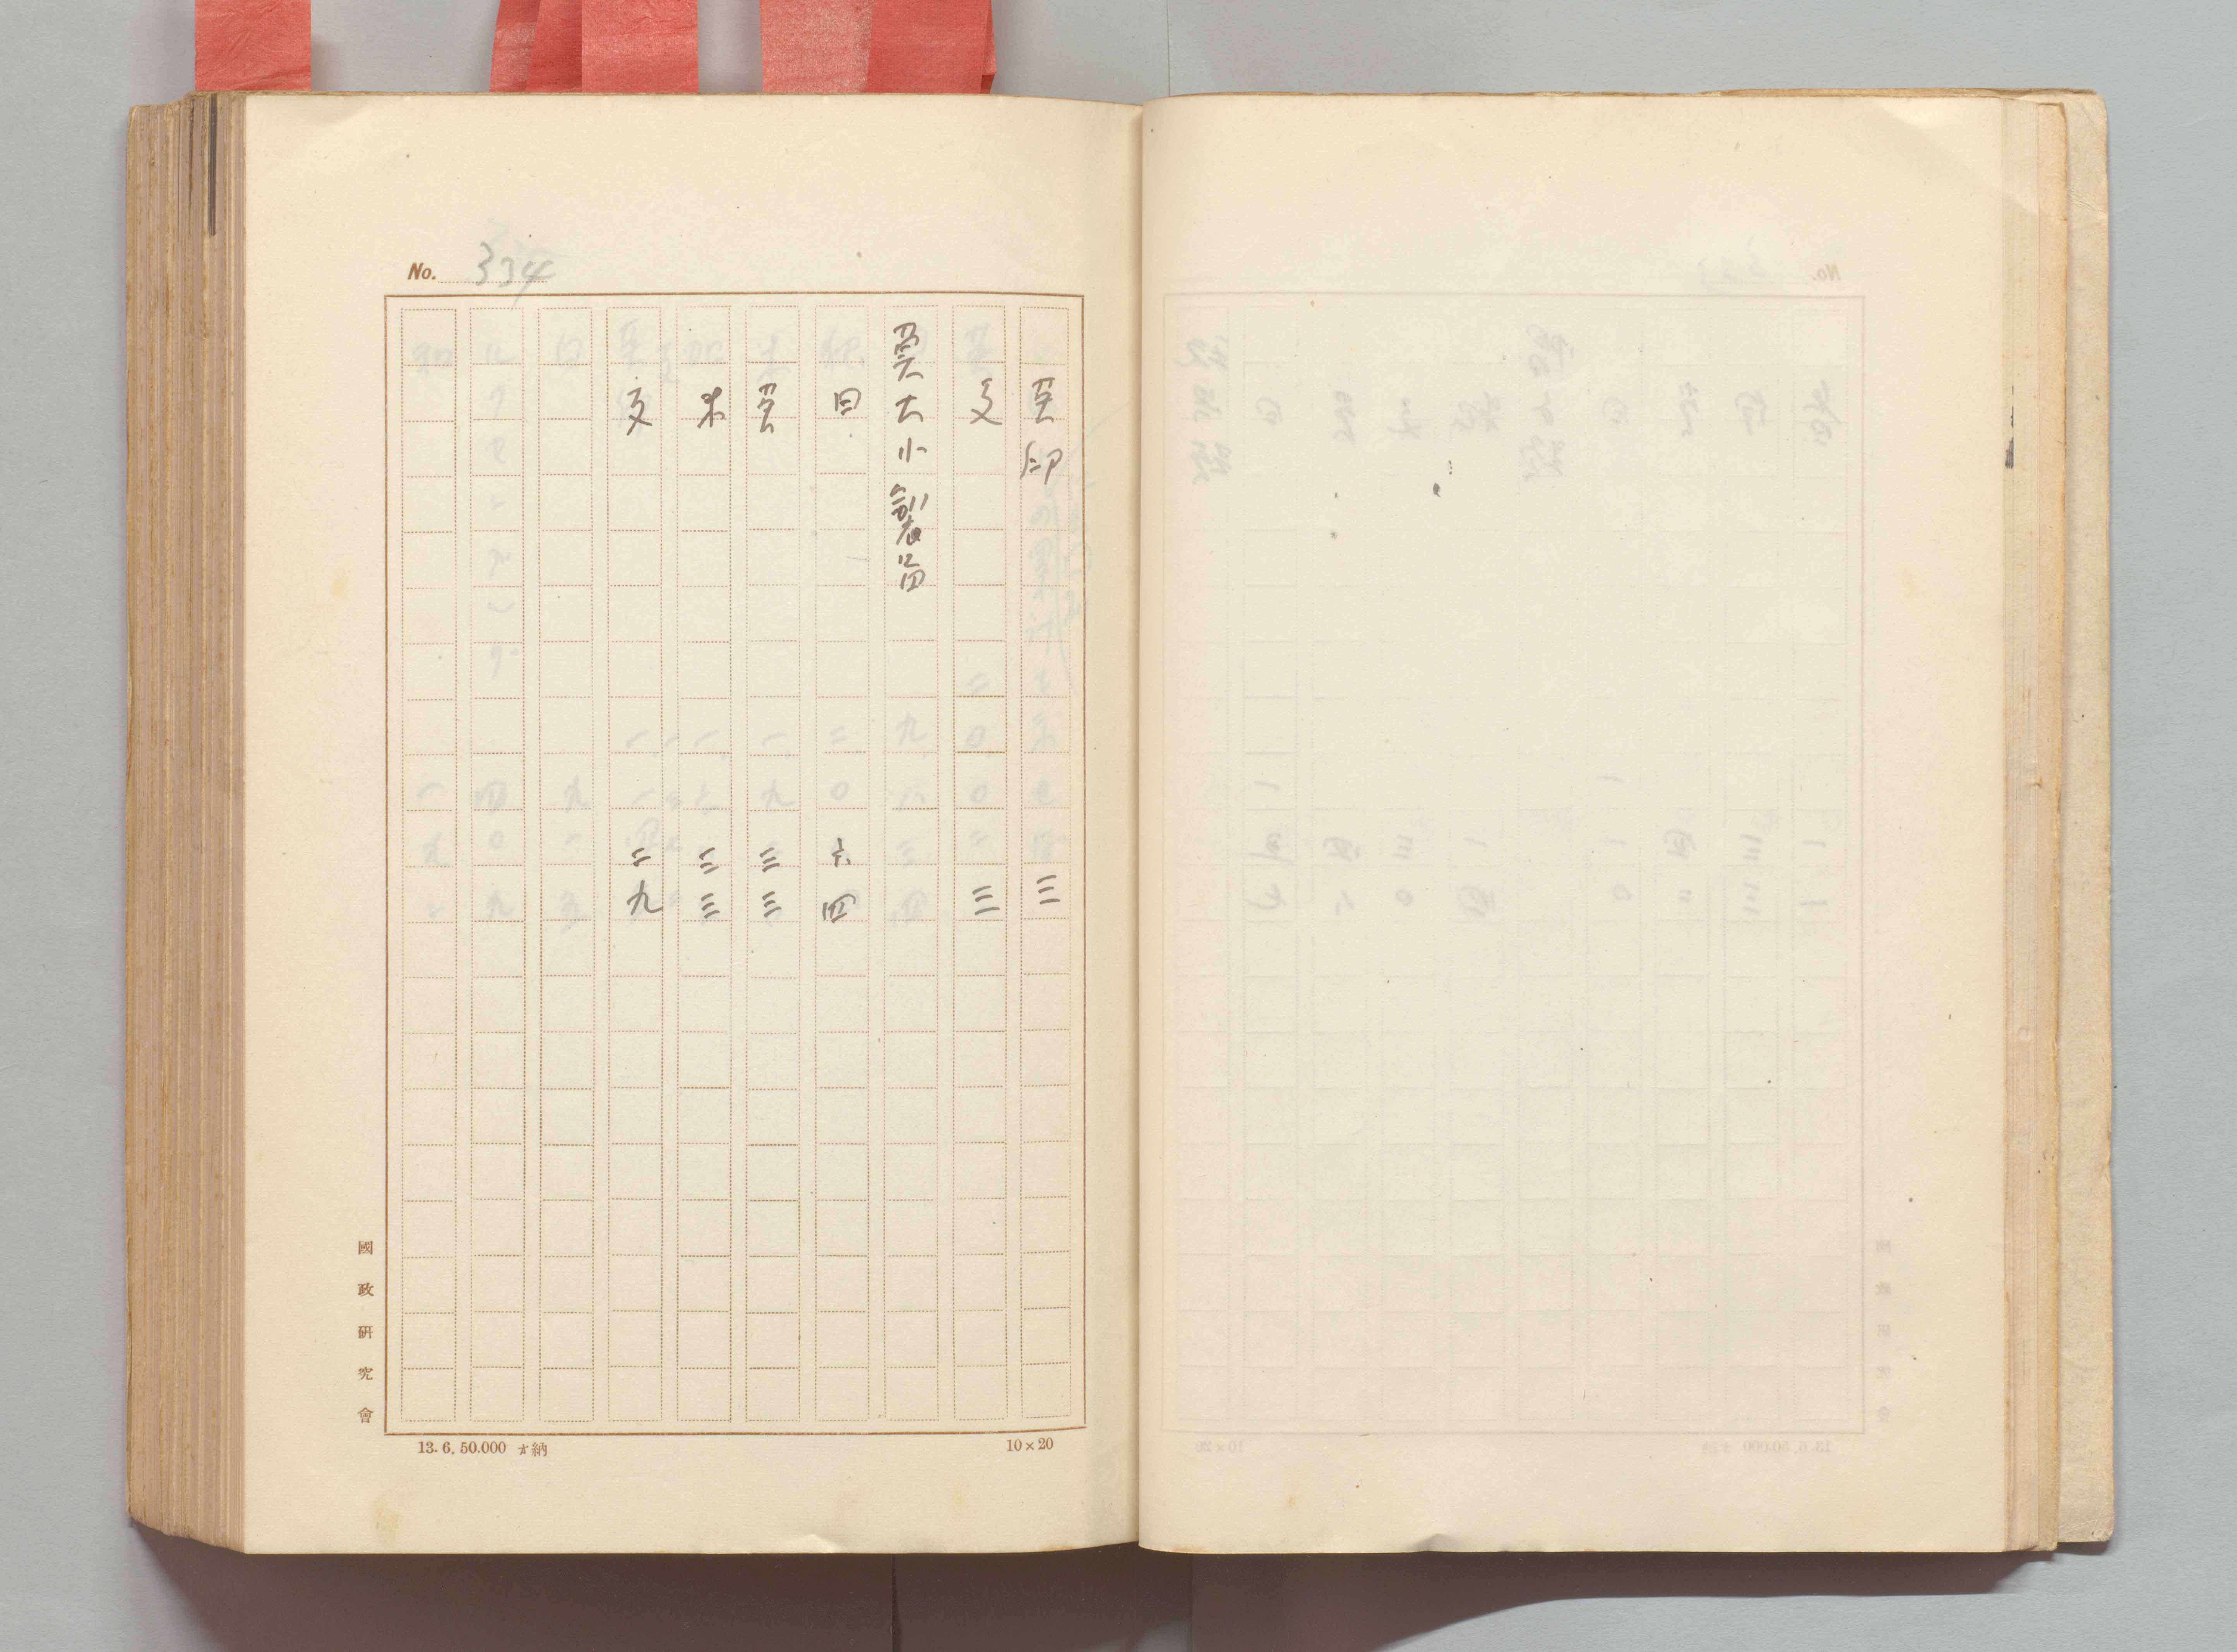 No. 334
英印 三
支 三
莫大小製品
日 六四
英 三三
米 三三
支 二九
國政研究會
13. 6. 50.000 納
10×20